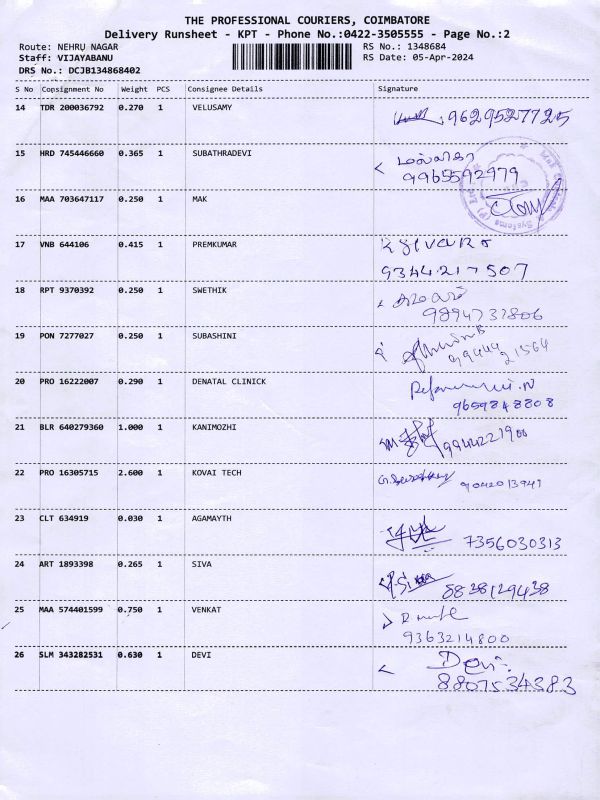 THE PROFESSIONAL COURIERS, COIMBATORE
Delivery Runsheet - KPT - Phone No.:0422-3505555 - Page No.:2
Route: NEHRU NAGAR RS No.: 1348684
Staff: VIJAYABANU RS Date: 05-Apr-2024
DRS No.: DCJB134868402
S No Consignment No Weight PCS Consignee Details Signature
14 TDR 200036792 0.270 1 VELUSAMY 9629527725
15 HRD 745446660 0.365 1 SUBATHRADEVI
9965592979
16 MAA 703647117 0.250 1 MAK
17 VNB 644106 0.415 1 PREMKUMAR
9344217507
18 RPT 9370392 0.250 1 SWETHIK
9894737806
19 PON 7277027 0.250 1 SUBASHINI
99449 21564
20 PRO 16222007 0.290 1 DENATAL CLINICK
9659848808
21 BLR 640279360 1.000 1 KANIMOZHI 9944221900
22 PRO 16305715 2.600 1 KOVAI TECH 9042013941
23 CLT 634919 0.030 1 AGAMAYTH 7356030313
24 ART 1893398 0.265 1 SIVA 8838129438
25 MAA 574401599 0.750 1 VENKAT
9363214800
26 SLM 343282531 0.630 1 DEVI Devi
8807534383